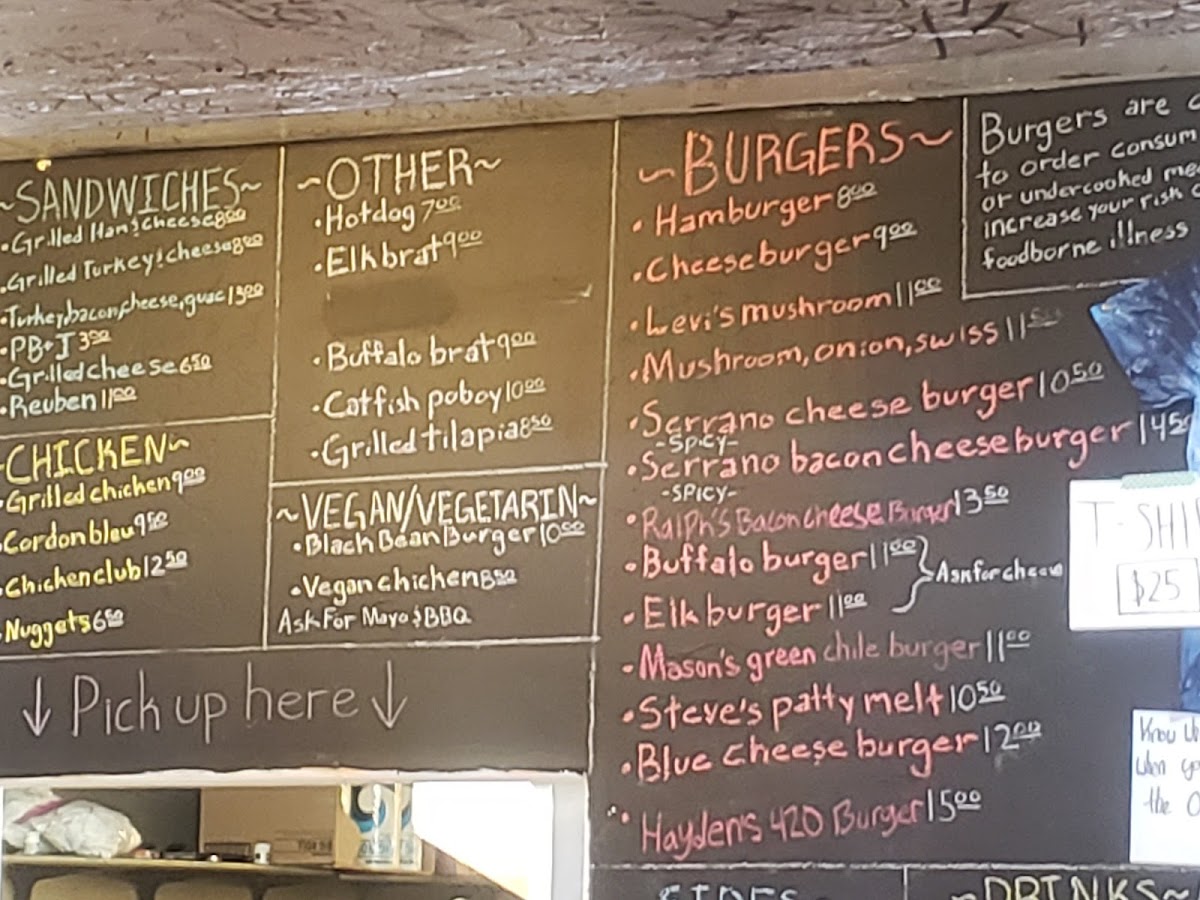 ~SANDWICHES~
•Grilled Ham&cheese 800
•Grilled Turkey&cheese 800
•Turkey,bacon,cheese,guac 13.00
•PB+J 3.00
•Grilled cheese 6.50
•Reuben 11.00
~CHICKEN~
•Grilled chicken 9.00
•Cordon bleu 9.50
•Chicken club 12.50
•Nuggets 6.50
~OTHER~
•Hotdog 7.00
•Elk brat 9.00
•Buffalo brat 9.00
•Catfish poboy 10.00
•Grilled tilapia 8.50
~VEGAN/VEGETARIN~
•Black Bean Burger 10.00
•Vegan chicken 8.50
Ask For Mayo & BBQ
↓ Pick up here ↓
~BURGERS~
•Hamburger 8.00
•Cheeseburger 9.00
•Levi's mushroom 11.00
•Mushroom, onion, swiss 11.50
•Serrano cheese burger 10.50
-SPICY-
•Serrano bacon cheeseburger 14.50
-SPICY-
•Ralph's Bacon cheese Burger 13.50
•Buffalo burger 11.00
•Elk burger 11.00
Ask for cheese
•Mason's green chile burger 11.00
•Steve's patty melt 10.50
•Blue cheese burger 12.00
•Hayden's 420 Burger 15.00
Burgers are
to order consum
or undercooked me
increase your risk
foodborne illness
T-SHI
$25
Know
when yo
the O
SIDES
~DRINKS~